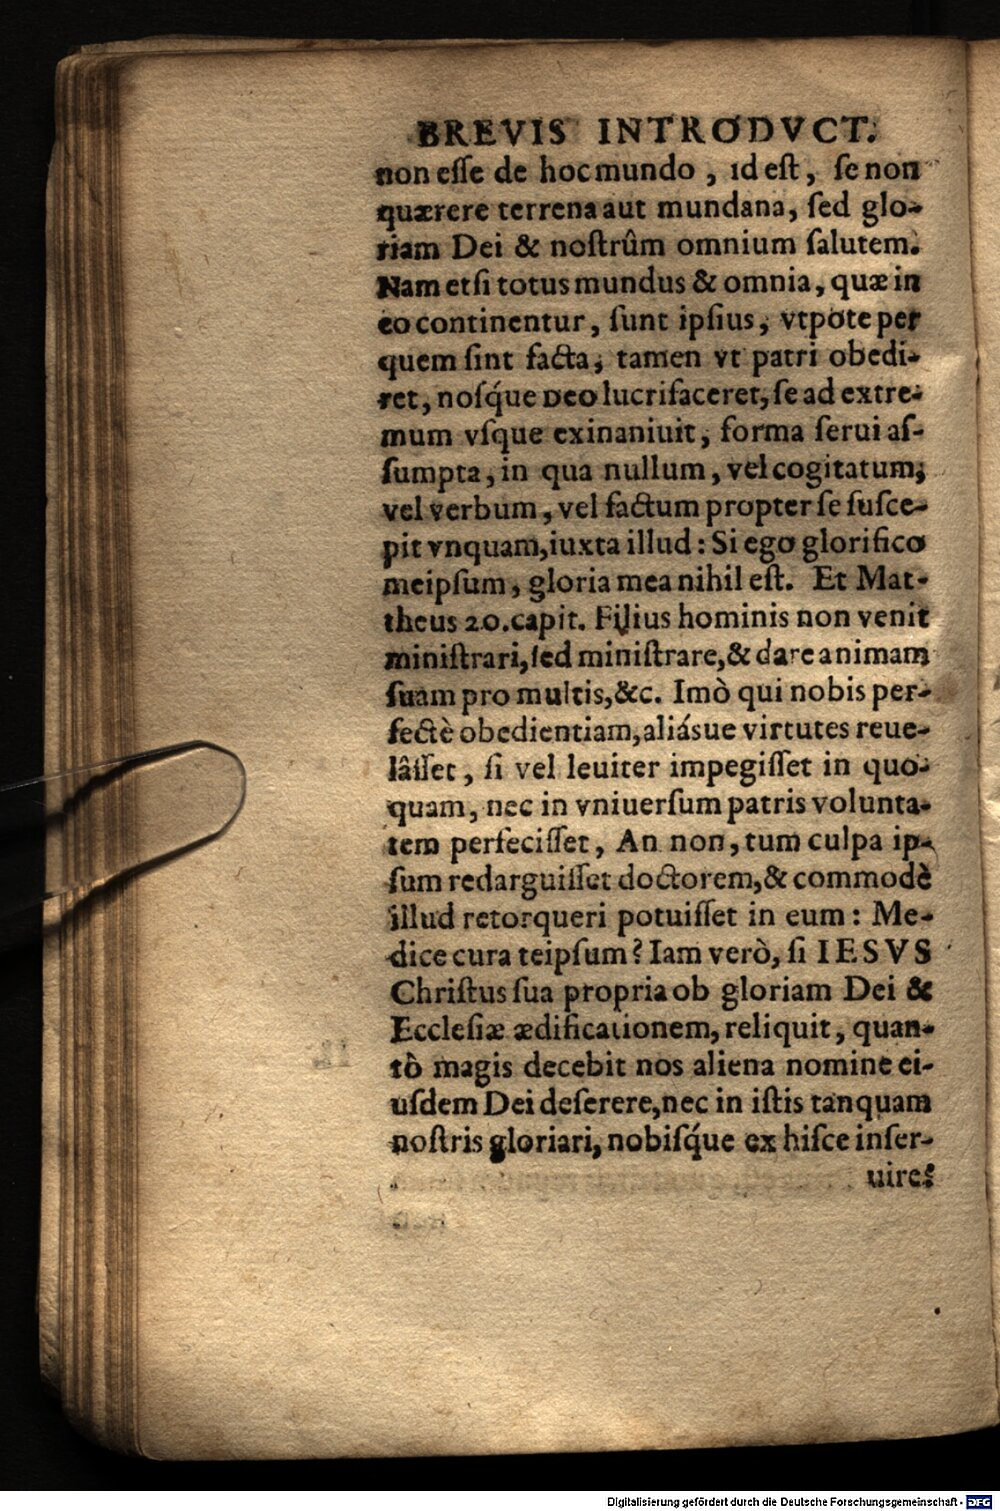 BREVIS INTRODVCT.
non eſſe de hoc mundo , id eſt, ſe non
quærere terrena aut mundana, ſed glo-
riam Dei & noſtrûm omnium ſalutem.
Nam etſi totus mundus & omnia, quæ in
eo continentur, ſunt ipſius, vtpote per
quem ſint facta, tamen vt patri obedi-
ret, noſq́ue Deo lucrifaceret, ſe ad extre-
mum vſque exinaniuit, forma ſerui aſ-
ſumpta, in qua nullum, vel cogitatum,
vel verbum, vel factum propter ſe ſuſce-
pit vnquam, iuxta illud: Si ego glorifico
meipſum, gloria mea nihil eſt. Et Mat-
theus 20. capit. Filius hominis non venit
miniſtrari, ſed miniſtrare, & dare animam
ſuam pro multis, &c. Imò qui nobis per-
fectè obedientiam, aliáſue virtutes reue-
lâſſet, ſi vel leuiter impegiſſet in quo-
quam, nec in vniuerſum patris volunta-
tem perfeciſſet, An non, tum culpa ip-
ſum redarguiſſet doctorem, & commodè
illud retorqueri potuiſſet in eum: Me-
dice cura teipſum? Iam verò, ſi IESVS
Chriſtus ſua propria ob gloriam Dei &
Eccleſiæ ædificationem, reliquit, quan-
tò magis decebit nos aliena nomine ei-
uſdem Dei deſerere, nec in iſtis tanquam
noſtris gloriari, nobiſq́ue ex hiſce inſer-
uire?
Digitalisierung gefördert durch die Deutsche Forschungsgemeinschaft - DFG